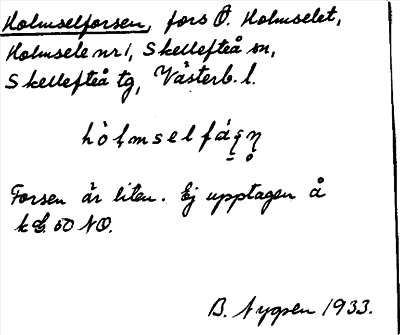 Holmselforsen, fors Ö. Holmselet,
Holmsele nr 1, Skellefteå sn,
Skellefteå tg, Västerb. l.
Forsen är liten. Ej upptagen å
50 NO.
B. Nygren 1933.